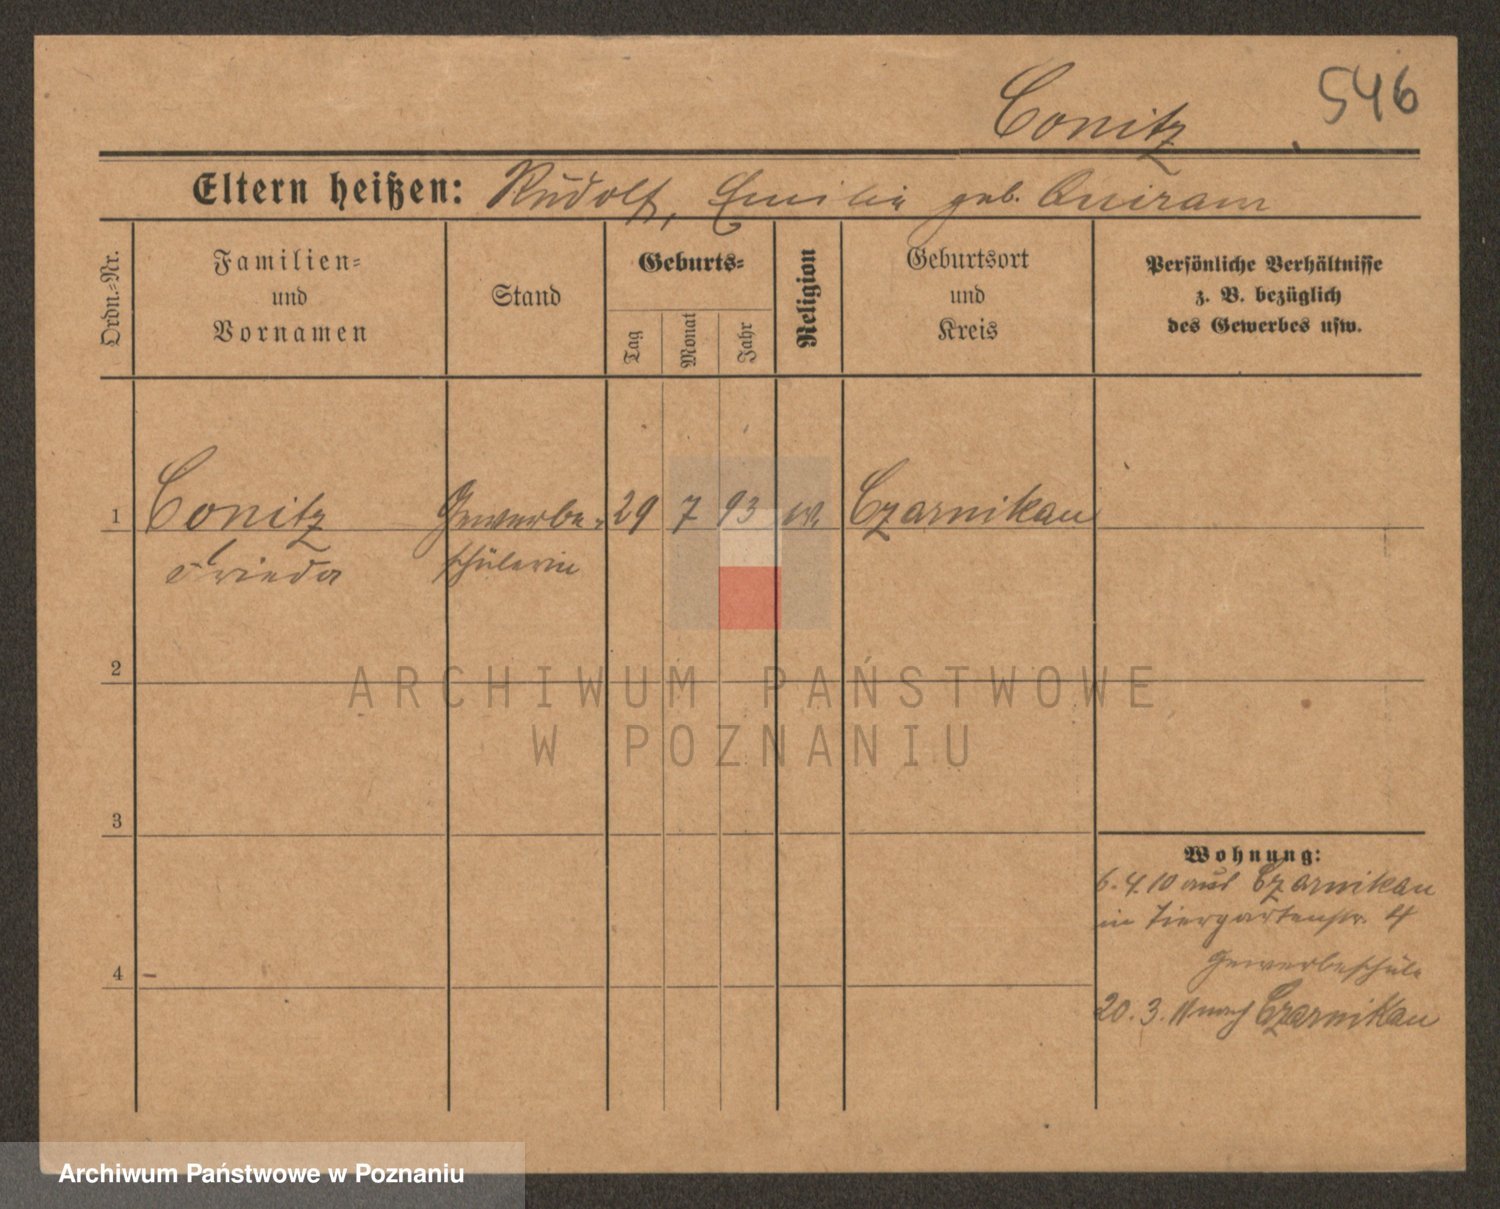 546
Conitz
Eltern heißen: Rudolf, Emilie geb. Quiram
Ordn.-Nr.
Familien- und Vornamen
Stand
Geburts-
Tag
Monat
Jahr
Religion
Geburtsort und Kreis
Persönliche Verhältnisse
z. B. bezüglich
des Gewerbes usw.
1 Conitz Gewerbe- 29 7 93 ev. Czarnikau
Frieda schülerin
2
ARCHIWUM PAŃSTWOWE
W POZNANIU
3
Wohnung:
6.4.10 aus Czarnikau
in Tiergartenstr. 4
Gewerbeschule
4
20.3.11 nach Czarnikau
Archiwum Państwowe w Poznaniu